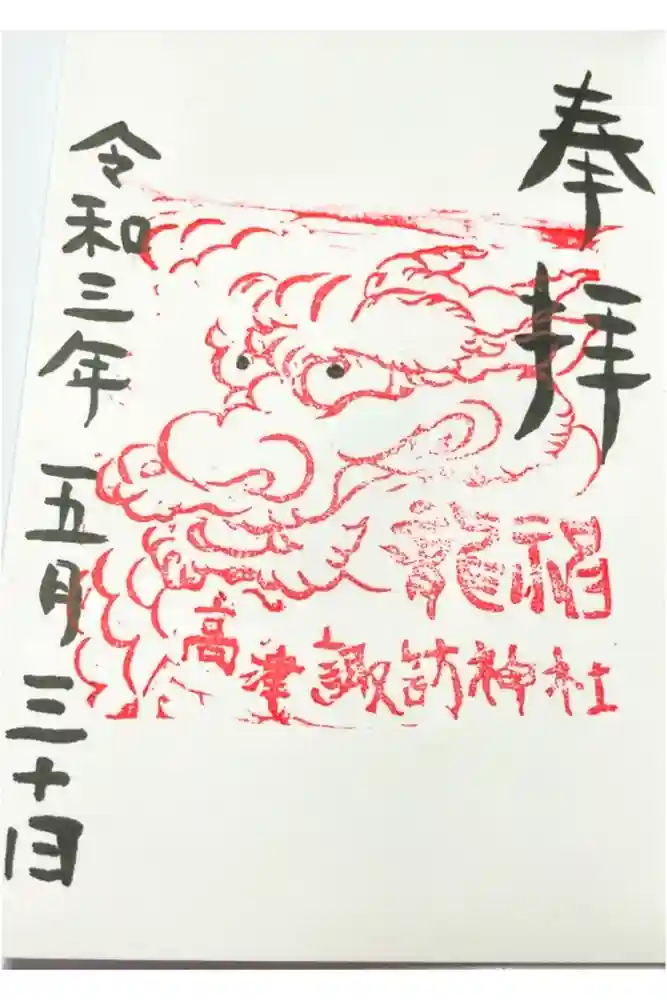 奉拝
龍福
高津諏訪神社
令和三年五月三十日